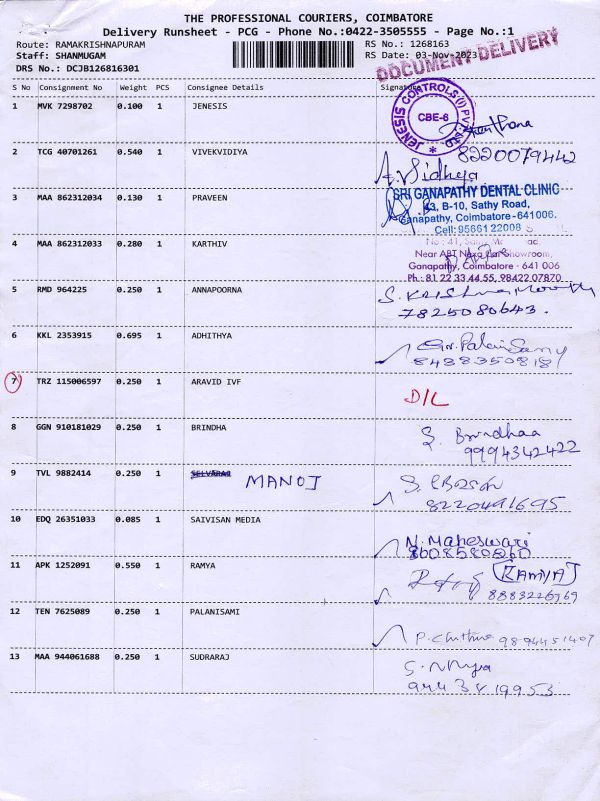 THE PROFESSIONAL COURIERS, COIMBATORE
Delivery Runsheet - PCG - Phone No.:0422-3505555 - Page No.:1
Route: RAMAKRISHNAPURAM RS No.: 1268163
Staff: SHANMUGAM RS Date: 03-Nov-2023
DRS No.: DCJB126816301
DOCUMENT DELIVERY
S No Consignment No Weight PCS Consignee Details Signature
1 MVK 7298702 0.100 1 JENESIS
JENESIS CONTROLS (I) PVT. LTD. CBE-6
8220079442
2 TCG 40701261 0.540 1 VIVEKVIDIYA
A. Vidhya
3 MAA 862312034 0.130 1 PRAVEEN
SRI GANAPATHY DENTAL CLINIC
43, B-10, Sathy Road,
Ganapathy, Coimbatore-641006.
Cell: 95661 22008
4 MAA 862312033 0.280 1 KARTHIV
No : 41,
Near ABT Showroom,
Ganapathy, Coimbatore - 641 006
Ph.: 81 22 33 44 55, 98422 07870
5 RMD 964225 0.250 1 ANNAPOORNA
7825080643.
6 KKL 2353915 0.695 1 ADHITHYA
7 TRZ 115006597 0.250 1 ARAVID IVF
D/L
8 GGN 910181029 0.250 1 BRINDHA
S. Brindhaa
9994342422
9 TVL 9882414 0.250 1 MANOJ
8220491695
10 EDQ 26351033 0.085 1 SAIVISAN MEDIA
N. Maheswari
11 APK 1252091 0.550 1 RAMYA
(RAMYA)
8883226969
12 TEN 7625089 0.250 1 PALANISAMI
9894451407
13 MAA 944061688 0.250 1 SUDRARAJ
9443819953